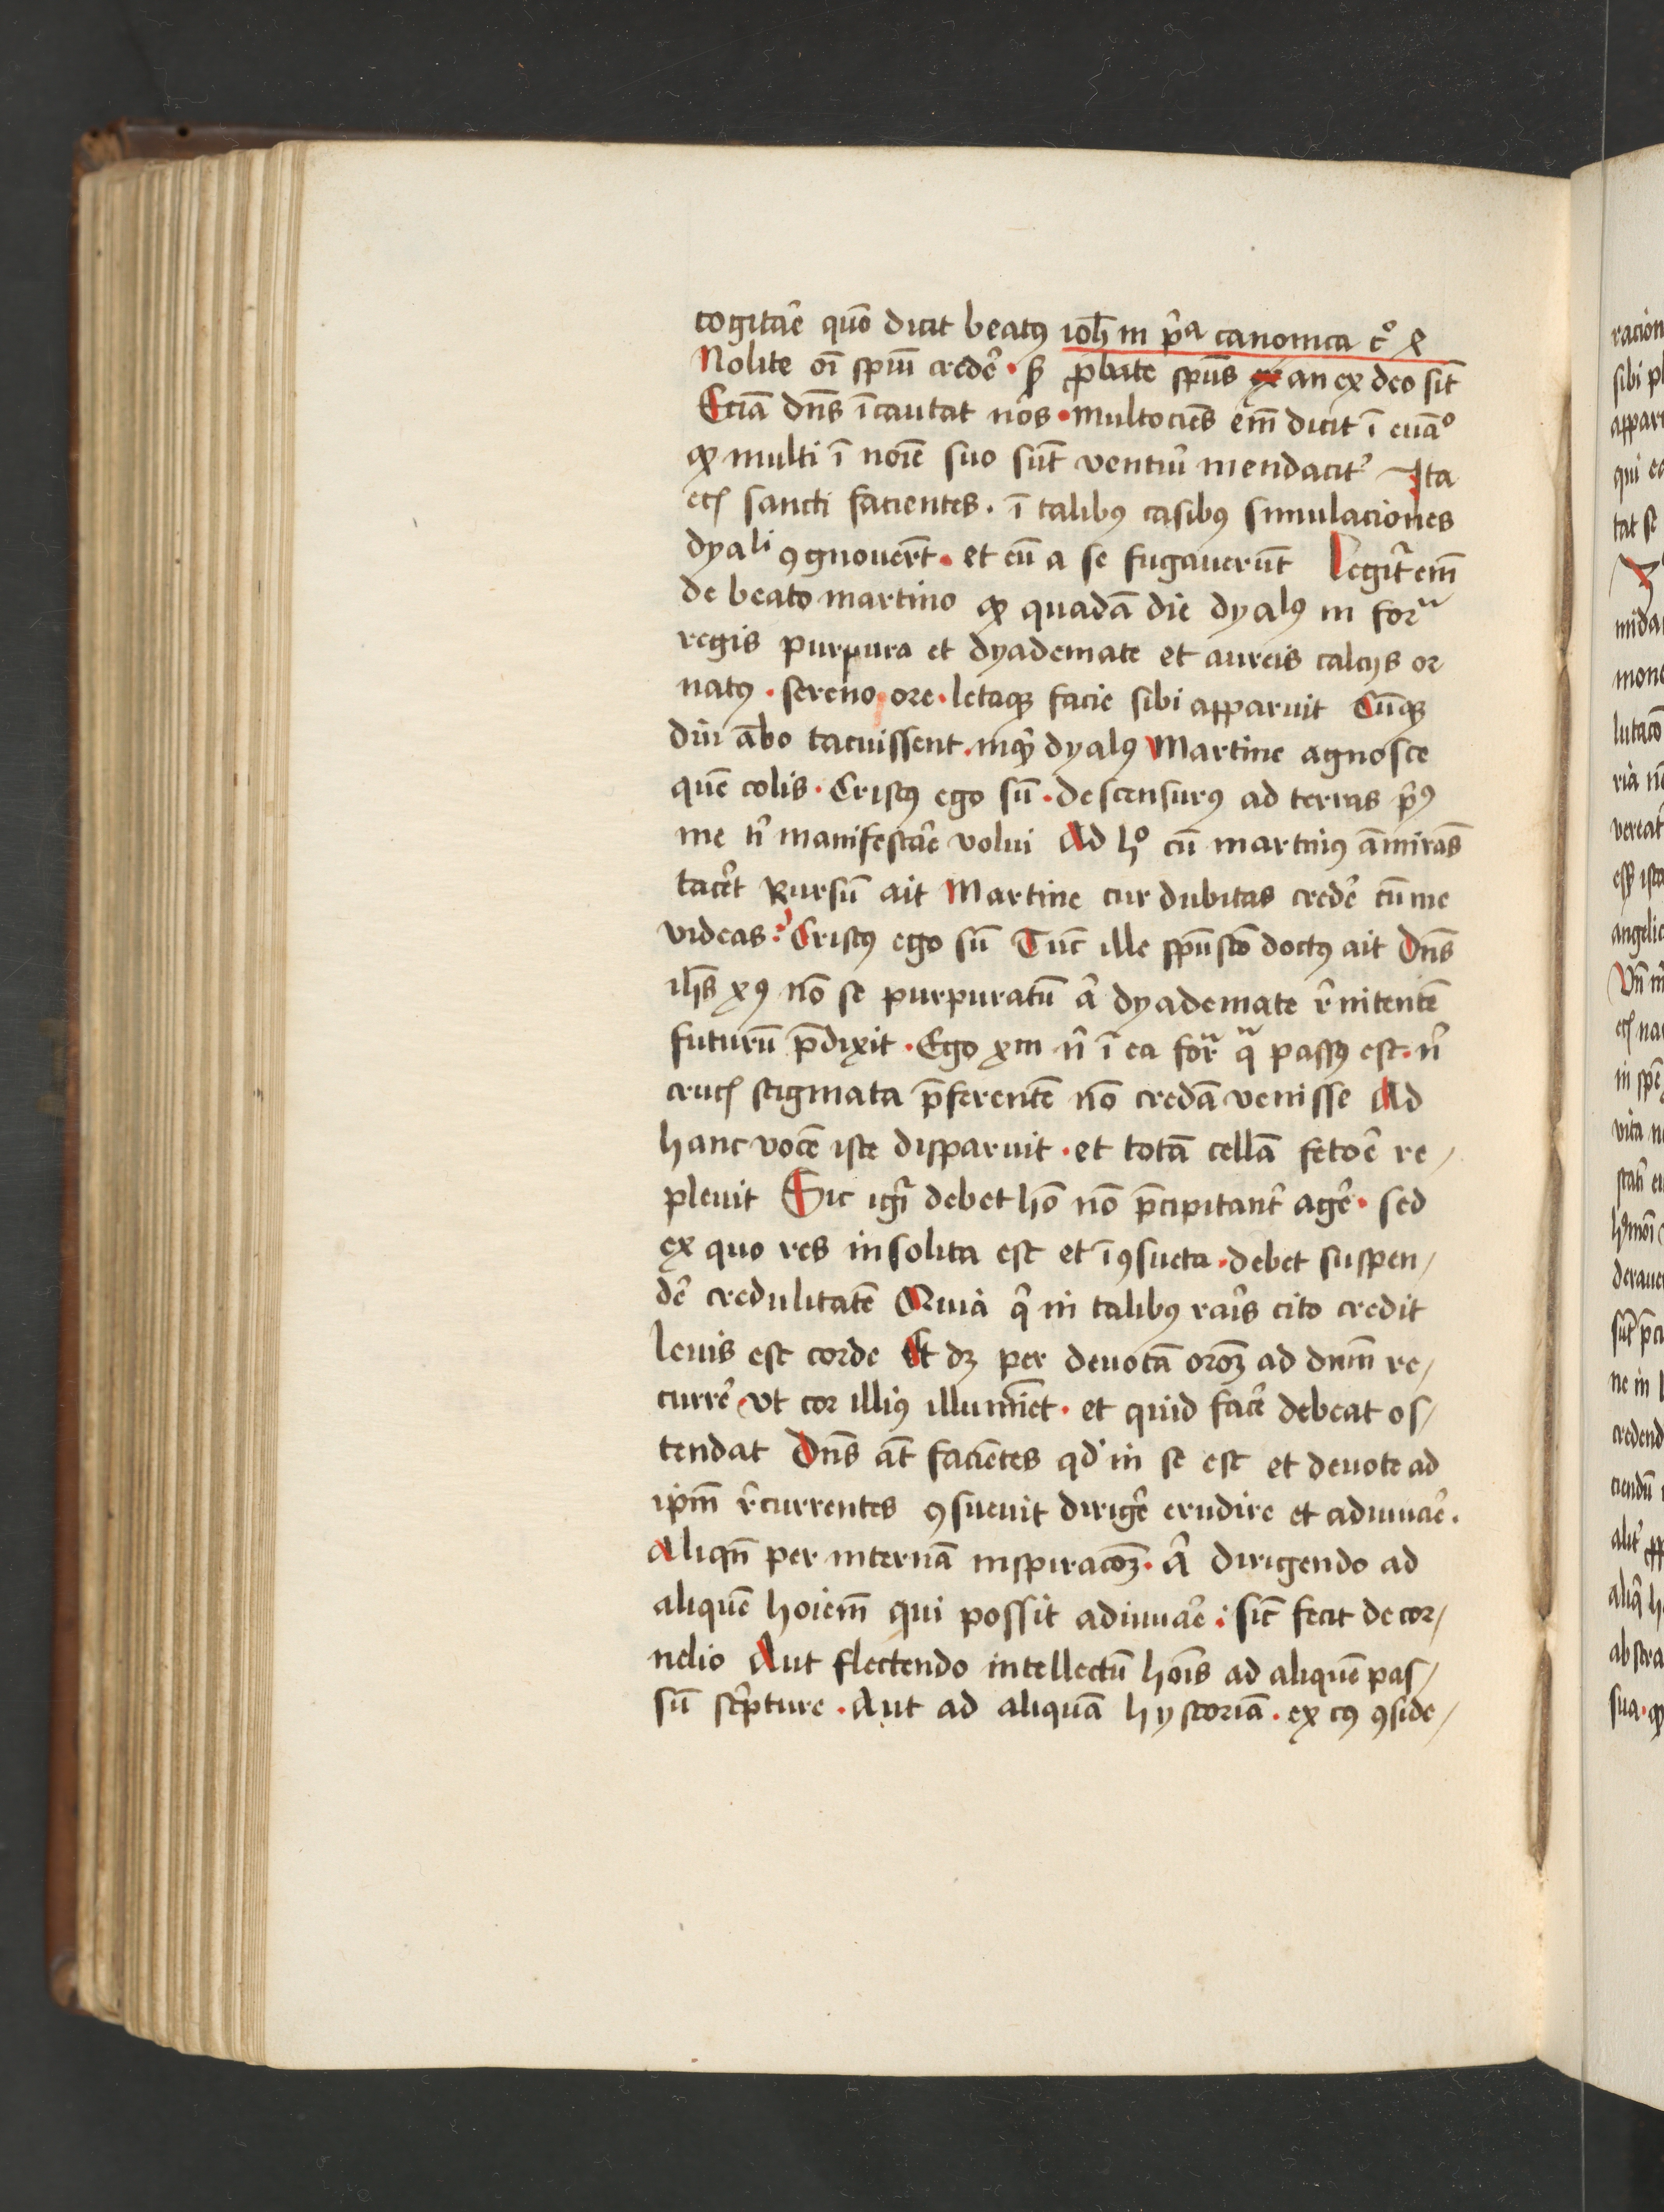 cogitar̄e quō dicit beatꝯ ioh̄ in p̄ᵃ canonica c° 4
Nolite oī sp̄ui crede᷑ · sꝫ ꝓbate sp̄us an ex deo sīt
Eciā dn̄s īcautat nos · multociēs em̄ dicit ī euā°
ꝙ multi ī noīe suo sūt ventur̄ mendacit᷑ Ita
etꝭ sancti facientes · ī talibꝯ casibꝯ simulaciones
dyaˡⁱ ꝯgnouer̄t · et eū a se fugauerūt Legit᷑ em̄
de beato martino ꝙ quadā die dyalꝯ in forᵃ
regis purpura et dyademate et aureis calcijs or
natꝯ · sereno ore · letaqꝫ facie sibi apparuit Cūqꝫ
diu ābo tacuissent · inqͥt dyalꝯ Martine agnosce
quē colis · Cristꝯ ego sū · descensurꝯ ad terras p̄ꝯ
me t̄ manifestar̄e volui Ad h° cū martinꝯ āmirās
tacer̄t Rursū ait Martine cur dubitas crede᷑ cū me
videas? Cristꝯ ego sū Tūc ille sp̄usctō doctꝯ ait Dn̄s
ih̄s xꝯ nō se purpuratū a᷑ dyademate r᷑nitentē
futurū p̄dixit · Ego xm̄ n̄ ī ea forᵃ qᵃ passꝯ est · n̄
crucꝭ stigmata p̄ferentē nō credā venisse Ad
hanc vocē iste disparuit · et totā cellā fetoe᷑ re/
pleuit Sic igr̄ debet hō nō p̄cipitant᷑ age᷑ · sed
ex quo res insolita est et īꝯsueta · debet suspen/
de᷑ credulitatē Quia qͥ in talibꝯ raīs cito credit
leuis est corde Et dꝫ per deuotā oroꝫ̄ ad dnm̄ re/
curre᷑ · vt cor illiꝯ illumīet · et quid face᷑ debeat os/
tendat Dn̄s āt faciētes qd̓ in se est et deuote ad
ipm̄ r᷑currentes ꝯsueuit dirige᷑ erudire et adiuuar̄e ·
Aliqn̄ per internā inspiracoꝫ̄ · a᷑ dirigendo ad
aliquē hoiem̄ qui possit adiuuar̄e : sic̄ fecit de cor/
nelio Aut flectendo intellectū hoīs ad aliquē pas/
sū sc͛pture · Aut ad aliquā hystoriā · ex cꝯ ꝯside/